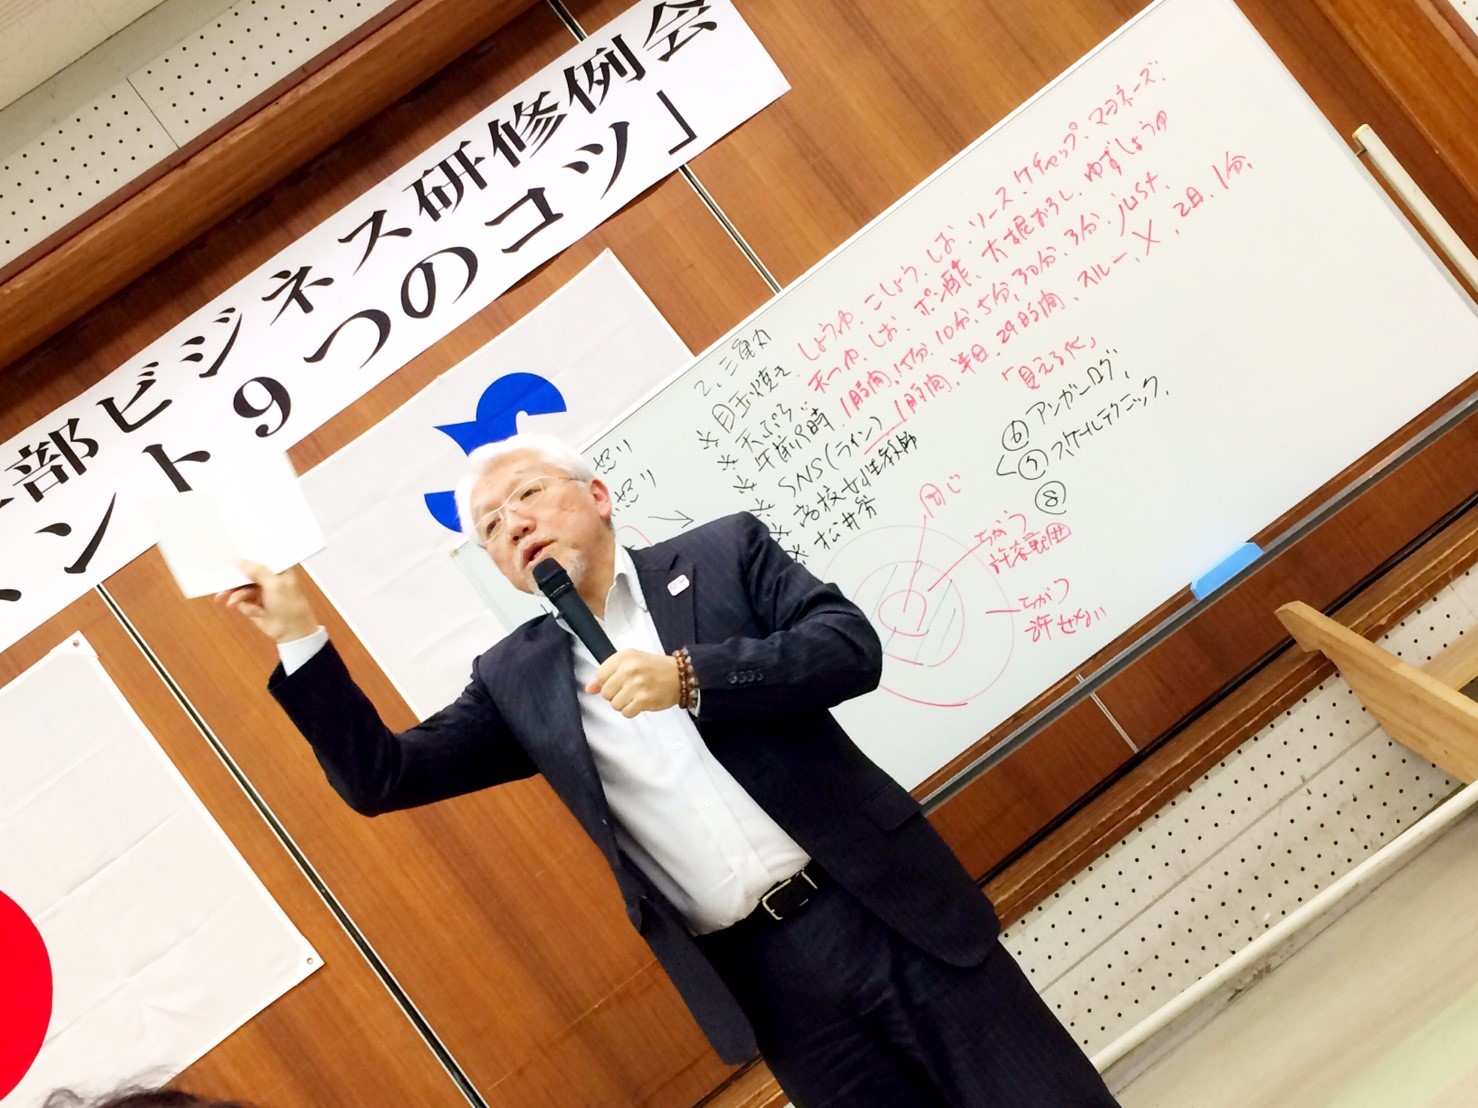 部ビジネス研修例会
ント9つのコツ」
2、三重丸
※目玉焼き しょうゆ、こしょう、しお、ソース、ケチャップ、マヨネーズ
※天ぷら 天つゆ、しお、ポン酢、大根おろし、ゆずしょうゆ
※午前10時 1時間、15分、10分、5分、30分、3分、JUST、
※SNS(ライン) 1時間、半日、24時間、スルー、X、2日、1分、
※高校女性教師
※松井秀
「見える化」
⑥アンガーログ、
⑦スケールテクニック、
⑧
怒り
怒り
同じ
ちがう
許容範囲
ちがう
許せない